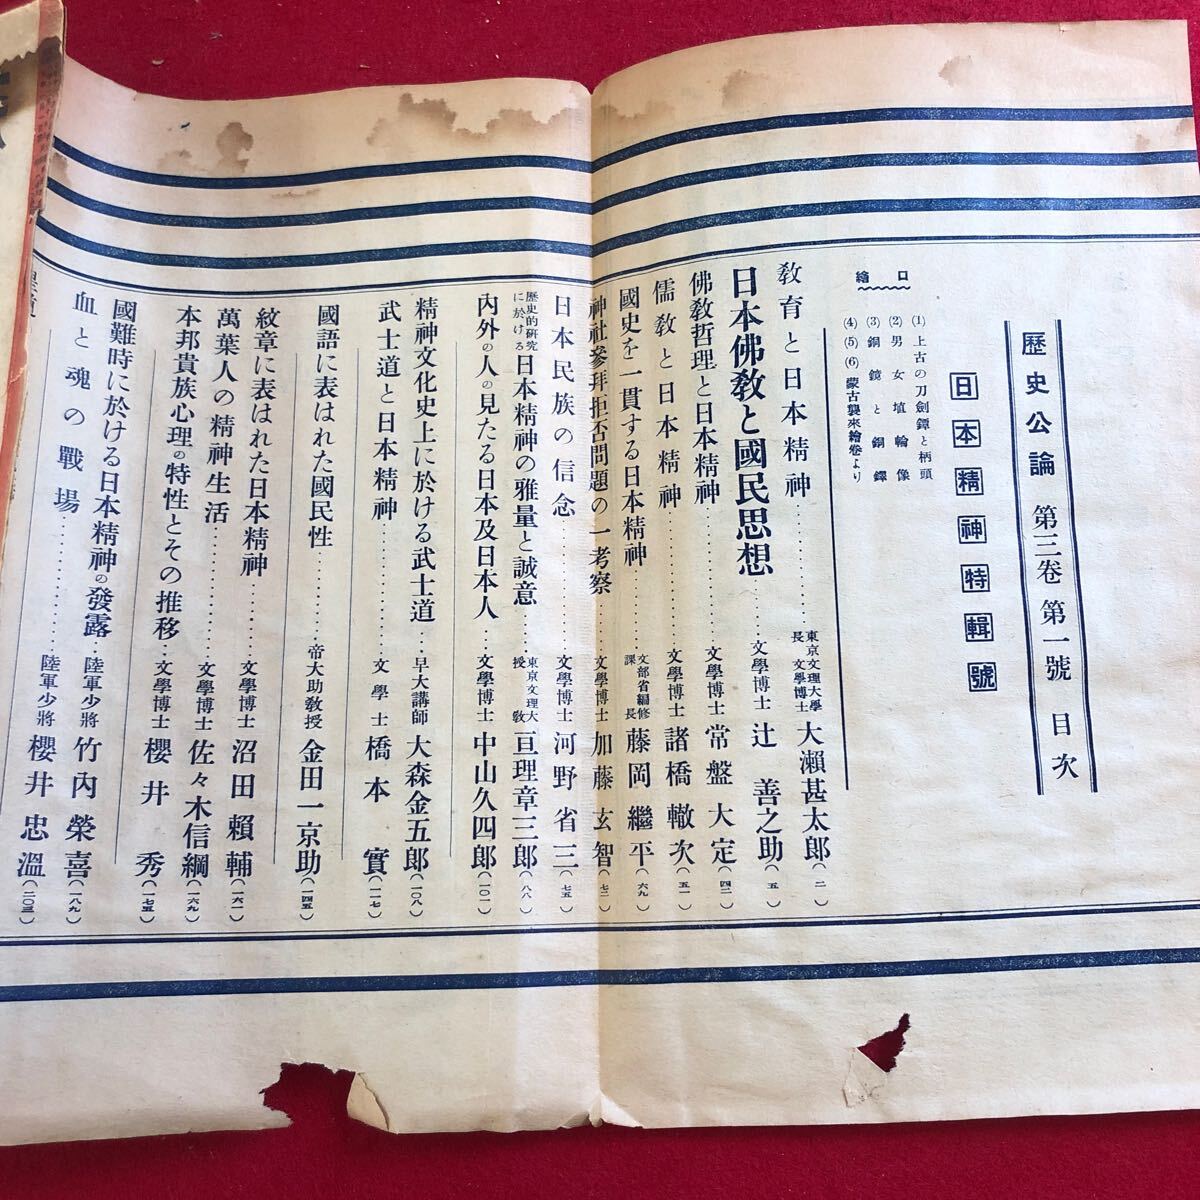 歷史公論 第三卷 第一號 目次
日本精神特輯號
口繪
(1) 上古の刀劍鐔と柄頭
(2) 男女埴輪像
(3) 銅鏡と銅鐸
(4)(5)(6) 蒙古襲來繪卷より
教育と日本精神‥‥‥東京文理大學長 文學博士 大瀨甚太郎(二)
日本佛教と國民思想‥‥‥文學博士 辻善之助(五)
佛教哲理と日本精神‥‥‥文學博士 常盤大定(四二)
儒教と日本精神‥‥‥文學博士 諸橋轍次(五一)
國史を一貫する日本精神‥‥‥文部省編修課長 藤岡繼平(六九)
神社參拜拒否問題の一考察‥‥‥文學博士 加藤玄智(七二)
日本民族の信念‥‥‥文學博士 河野省三(七五)
歷史的硏究に於ける日本精神の雅量と誠意‥‥‥東京文理大教授 亘理章三郎(八八)
內外の人の見たる日本及日本人‥‥‥文學博士 中山久四郎(一〇一)
精神文化史上に於ける武士道‥‥‥早大講師 大森金五郎(一〇八)
武士道と日本精神‥‥‥文學士 橋本實(一一七)
國語に表はれた國民性‥‥‥帝大助教授 金田一京助(一四五)
紋章に表はれた日本精神‥‥‥文學博士 沼田賴輔(一六一)
萬葉人の精神生活‥‥‥文學博士 佐々木信綱(一六九)
本邦貴族心理の特性とその推移‥‥‥文學博士 櫻井秀(一七五)
國難時に於ける日本精神の發露‥‥‥陸軍少將 竹內榮喜(一八九)
血と魂の戰場‥‥‥陸軍少將 櫻井忠溫(二〇三)